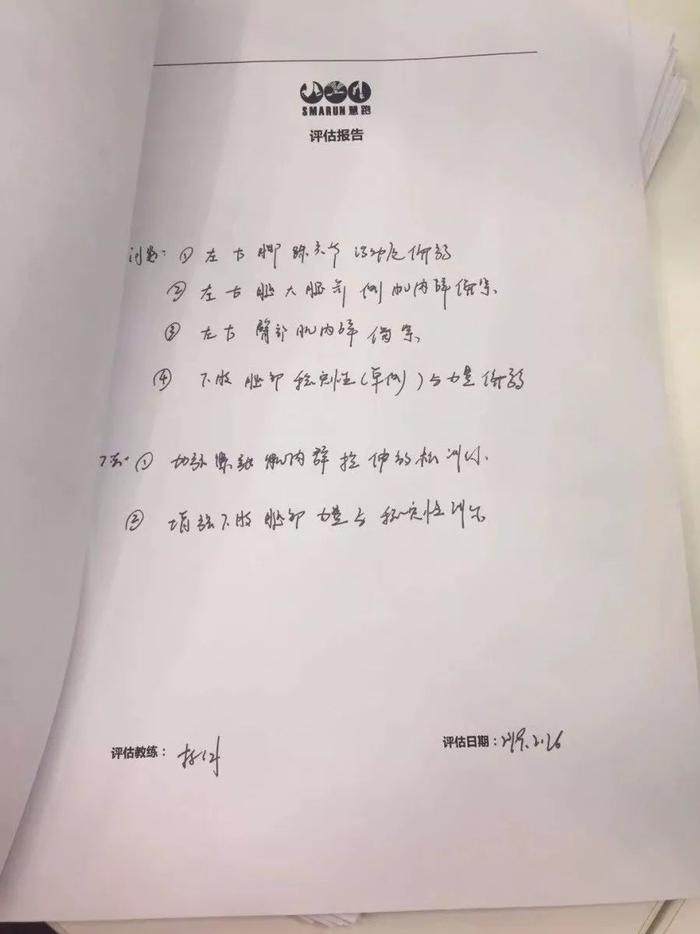 SMARUN 慧跑
评估报告
问题: ① 左右脚踝关节活动度偏弱
② 左右腿大腿前侧肌肉群偏紧
③ 左右臀部肌肉群偏紧
④ 下肢腿部稳定性(单侧)与力量偏弱
① 加强紧张肌肉群拉伸放松训练
② 增强下肢腿部力量与稳定性训练
评估教练:
评估日期: 2019.2.26